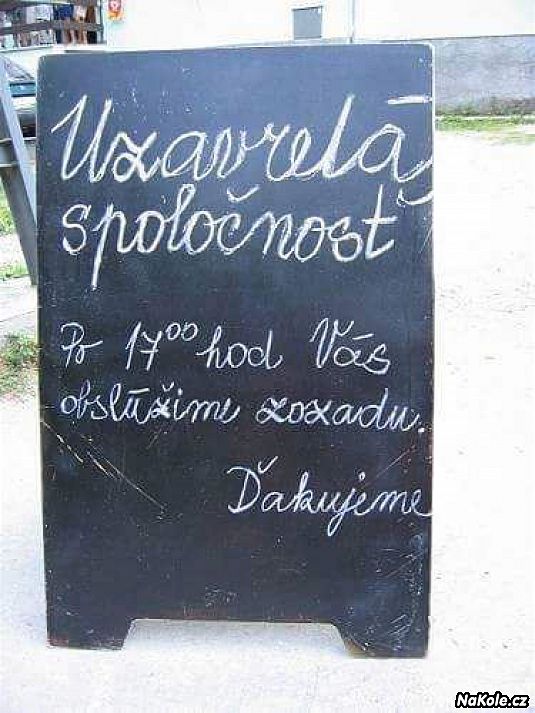 Uzavretá
spoločnosť
Po 17⁰⁰ hod Vás
obslúžime zozadu.
Ďakujeme
NaKole.cz